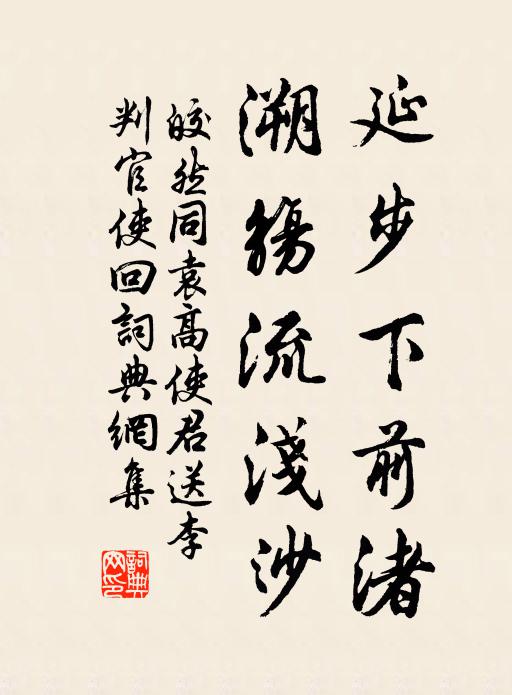 延步下前渚
溯觴流淺沙
皎然同袁高使君送李
判官使回詞典網集
詞典网印